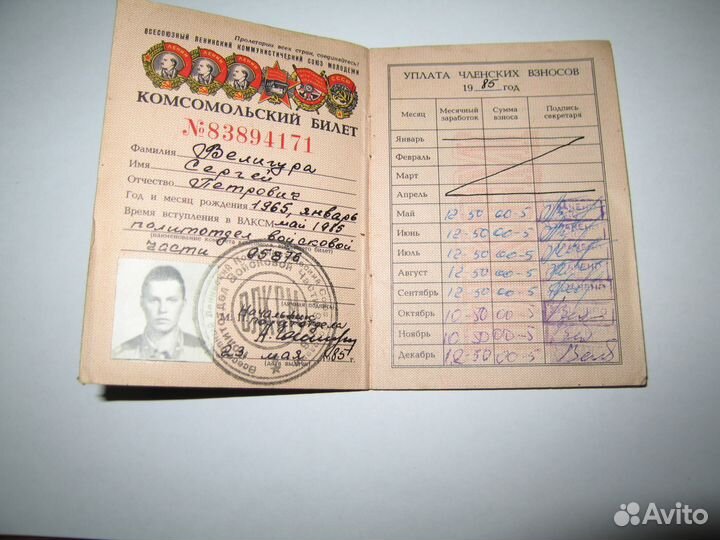 Пролетарии всех стран, соединяйтесь!
ВСЕСОЮЗНЫЙ ЛЕНИНСКИЙ КОММУНИСТИЧЕСКИЙ СОЮЗ МОЛОДЕЖИ
КОМСОМОЛЬСКИЙ БИЛЕТ
№83894171
Фамилия Велигура
Имя Сергей
Отчество Петрович
Год и месяц рождения 1965, январь
Время вступления в ВЛКСМ май 1985
политотдел войсковой
части 95876
(личная подпись)
М. Начальник
политотдела
23 мая 1985 г.
(дата выдачи)
ВЛКСМ
УПЛАТА ЧЛЕНСКИХ ВЗНОСОВ
19 85 год
Месяц Месячный заработок Сумма взноса Подпись секретаря
Январь
Февраль
Март
Апрель
Май 12-50 00-5
Июнь 12-50 00-5
Июль 12-50 00-5
Август 12-50 00-5
Сентябрь 12-50 00-5
Октябрь 10-50 00-5
Ноябрь 10-50 00-5
Декабрь 12-50 00-5
Avito